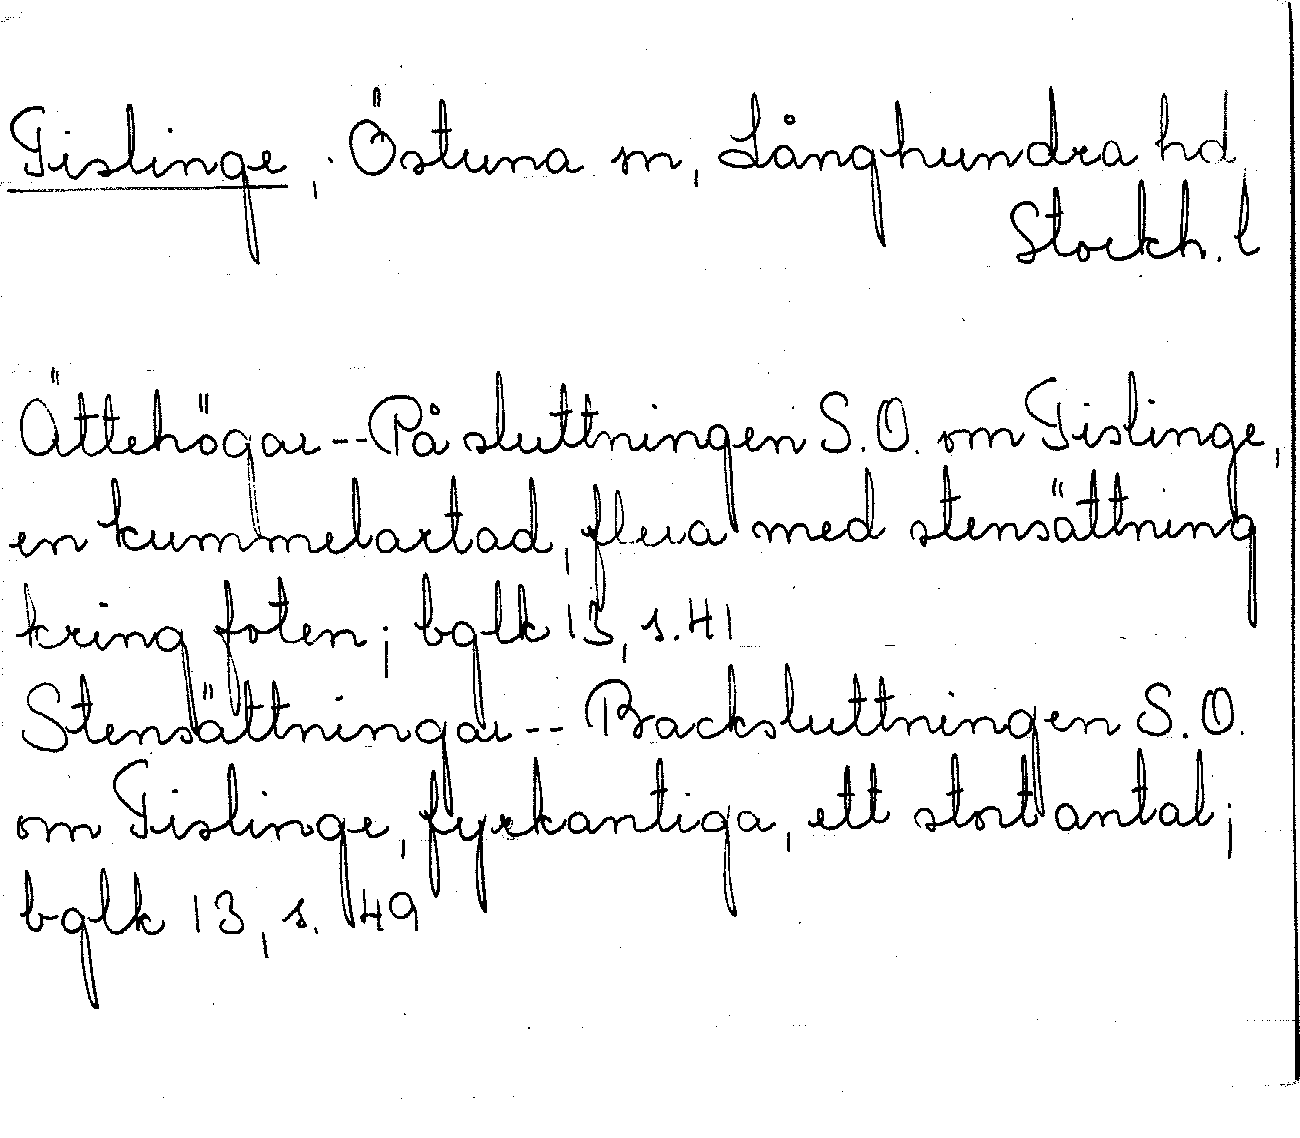 Tislinge, Östuna sn, Långhundra hd
Stockh. l
Ättehögar -- På sluttningen S.O. om Tislinge,
en kummelartad, flera med stensättning
kring foten; bglk 13, s. 41
Stensättningar -- Backsluttningen S.O.
om Tislinge, fyrkantiga, ett stort antal;
bglk 13, s. 49